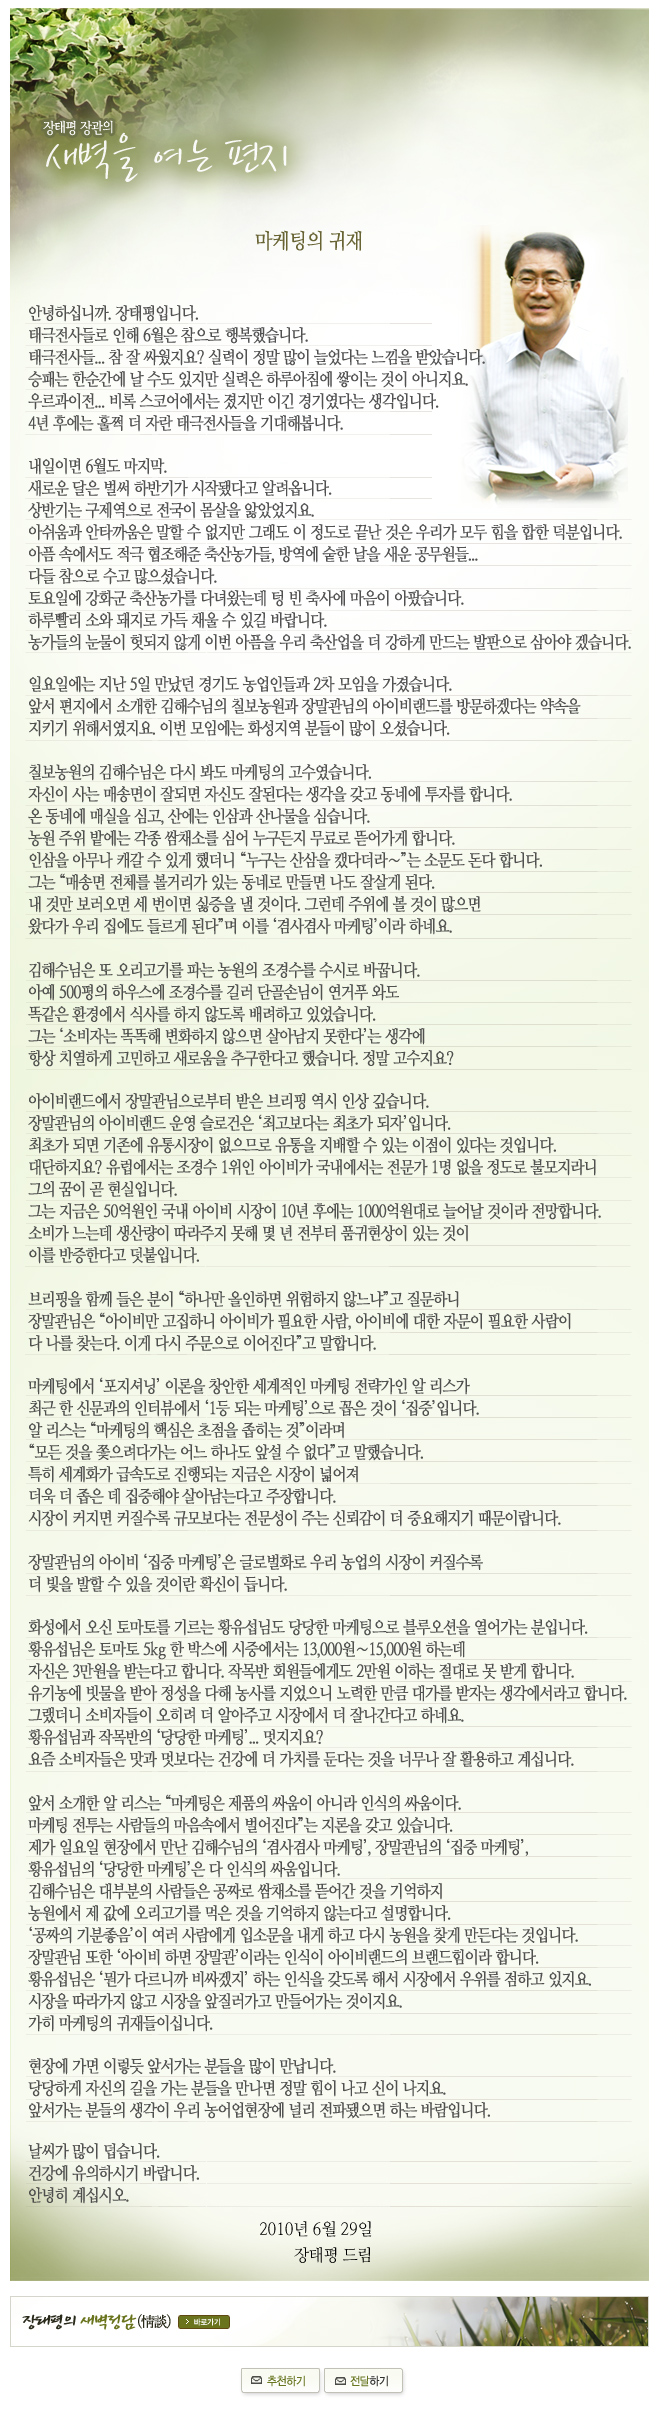 장태평 장관의
새벽을 여는 편지
마케팅의 귀재
안녕하십니까. 장태평입니다.
태극전사들로 인해 6월은 참으로 행복했습니다.
태극전사들... 참 잘 싸웠지요? 실력이 정말 많이 늘었다는 느낌을 받았습니다.
승패는 한순간에 날 수도 있지만 실력은 하루아침에 쌓이는 것이 아니지요.
우르과이전... 비록 스코어에서는 졌지만 이긴 경기였다는 생각입니다.
4년 후에는 훌쩍 더 자란 태극전사들을 기대해봅니다.
내일이면 6월도 마지막.
새로운 달은 벌써 하반기가 시작됐다고 알려옵니다.
상반기는 구제역으로 전국이 몸살을 앓았었지요.
아쉬움과 안타까움은 말할 수 없지만 그래도 이 정도로 끝난 것은 우리가 모두 힘을 합한 덕분입니다.
아픔 속에서도 적극 협조해준 축산농가들, 방역에 숱한 날을 새운 공무원들...
다들 참으로 수고 많으셨습니다.
토요일에 강화군 축산농가를 다녀왔는데 텅 빈 축사에 마음이 아팠습니다.
하루빨리 소와 돼지로 가득 채울 수 있길 바랍니다.
농가들의 눈물이 헛되지 않게 이번 아픔을 우리 축산업을 더 강하게 만드는 발판으로 삼아야 겠습니다.
일요일에는 지난 5일 만났던 경기도 농업인들과 2차 모임을 가졌습니다.
앞서 편지에서 소개한 김해수님의 칠보농원과 장말관님의 아이비랜드를 방문하겠다는 약속을
지키기 위해서였지요. 이번 모임에는 화성지역 분들이 많이 오셨습니다.
칠보농원의 김해수님은 다시 봐도 마케팅의 고수였습니다.
자신이 사는 매송면이 잘되면 자신도 잘된다는 생각을 갖고 동네에 투자를 합니다.
온 동네에 매실을 심고, 산에는 인삼과 산나물을 심습니다.
농원 주위 밭에는 각종 쌈채소를 심어 누구든지 무료로 뜯어가게 합니다.
인삼을 아무나 캐갈 수 있게 했더니 “누구는 산삼을 캤다더라~”는 소문도 돈다 합니다.
그는 “매송면 전체를 볼거리가 있는 동네로 만들면 나도 잘살게 된다.
내 것만 보러오면 세 번이면 싫증을 낼 것이다. 그런데 주위에 볼 것이 많으면
왔다가 우리 집에도 들르게 된다”며 이를 ‘겸사겸사 마케팅’이라 하네요.
김해수님은 또 오리고기를 파는 농원의 조경수를 수시로 바꿉니다.
아예 500평의 하우스에 조경수를 길러 단골손님이 연거푸 와도
똑같은 환경에서 식사를 하지 않도록 배려하고 있었습니다.
그는 ‘소비자는 똑똑해 변화하지 않으면 살아남지 못한다’는 생각에
항상 치열하게 고민하고 새로움을 추구한다고 했습니다. 정말 고수지요?
아이비랜드에서 장말관님으로부터 받은 브리핑 역시 인상 깊습니다.
장말관님의 아이비랜드 운영 슬로건은 ‘최고보다는 최초가 되자’입니다.
최초가 되면 기존에 유통시장이 없으므로 유통을 지배할 수 있는 이점이 있다는 것입니다.
대단하지요? 유럽에서는 조경수 1위인 아이비가 국내에서는 전문가 1명 없을 정도로 불모지라니
그의 꿈이 곧 현실입니다.
그는 지금은 50억원인 국내 아이비 시장이 10년 후에는 1000억원대로 늘어날 것이라 전망합니다.
소비가 느는데 생산량이 따라주지 못해 몇 년 전부터 품귀현상이 있는 것이
이를 반증한다고 덧붙입니다.
브리핑을 함께 들은 분이 “하나만 올인하면 위험하지 않느냐”고 질문하니
장말관님은 “아이비만 고집하니 아이비가 필요한 사람, 아이비에 대한 자문이 필요한 사람이
다 나를 찾는다. 이게 다시 주문으로 이어진다”고 말합니다.
마케팅에서 ‘포지셔닝’ 이론을 창안한 세계적인 마케팅 전략가인 알 리스가
최근 한 신문과의 인터뷰에서 ‘1등 되는 마케팅’으로 꼽은 것이 ‘집중’입니다.
알 리스는 “마케팅의 핵심은 초점을 좁히는 것”이라며
“모든 것을 쫓으려다가는 어느 하나도 앞설 수 없다”고 말했습니다.
특히 세계화가 급속도로 진행되는 지금은 시장이 넓어져
더욱 더 좁은 데 집중해야 살아남는다고 주장합니다.
시장이 커지면 커질수록 규모보다는 전문성이 주는 신뢰감이 더 중요해지기 때문이랍니다.
장말관님의 아이비 ‘집중 마케팅’은 글로벌화로 우리 농업의 시장이 커질수록
더 빛을 발할 수 있을 것이란 확신이 듭니다.
화성에서 오신 토마토를 기르는 황유섭님도 당당한 마케팅으로 블루오션을 열어가는 분입니다.
황유섭님은 토마토 5kg 한 박스에 시중에서는 13,000원~15,000원 하는데
자신은 3만원을 받는다고 합니다. 작목반 회원들에게도 2만원 이하는 절대로 못 받게 합니다.
유기농에 빗물을 받아 정성을 다해 농사를 지었으니 노력한 만큼 대가를 받자는 생각에서라고 합니다.
그랬더니 소비자들이 오히려 더 알아주고 시장에서 더 잘나간다고 하네요.
황유섭님과 작목반의 ‘당당한 마케팅’... 멋지지요?
요즘 소비자들은 맛과 멋보다는 건강에 더 가치를 둔다는 것을 너무나 잘 활용하고 계십니다.
앞서 소개한 알 리스는 “마케팅은 제품의 싸움이 아니라 인식의 싸움이다.
마케팅 전투는 사람들의 마음속에서 벌어진다”는 지론을 갖고 있습니다.
제가 일요일 현장에서 만난 김해수님의 ‘겸사겸사 마케팅’, 장말관님의 ‘집중 마케팅’,
황유섭님의 ‘당당한 마케팅’은 다 인식의 싸움입니다.
김해수님은 대부분의 사람들은 공짜로 쌈채소를 뜯어간 것을 기억하지
농원에서 제 값에 오리고기를 먹은 것을 기억하지 않는다고 설명합니다.
‘공짜의 기분좋음’이 여러 사람에게 입소문을 내게 하고 다시 농원을 찾게 만든다는 것입니다.
장말관님 또한 ‘아이비 하면 장말관’이라는 인식이 아이비랜드의 브랜드힘이라 합니다.
황유섭님은 ‘뭔가 다르니까 비싸겠지’ 하는 인식을 갖도록 해서 시장에서 우위를 점하고 있지요.
시장을 따라가지 않고 시장을 앞질러가고 만들어가는 것이지요.
가히 마케팅의 귀재들이십니다.
현장에 가면 이렇듯 앞서가는 분들을 많이 만납니다.
당당하게 자신의 길을 가는 분들을 만나면 정말 힘이 나고 신이 나지요.
앞서가는 분들의 생각이 우리 농어업현장에 널리 전파됐으면 하는 바람입니다.
날씨가 많이 덥습니다.
건강에 유의하시기 바랍니다.
안녕히 계십시오.
2010년 6월 29일
장태평 드림
장태평의 새벽정담(情談) 바로가기
추천하기 전달하기